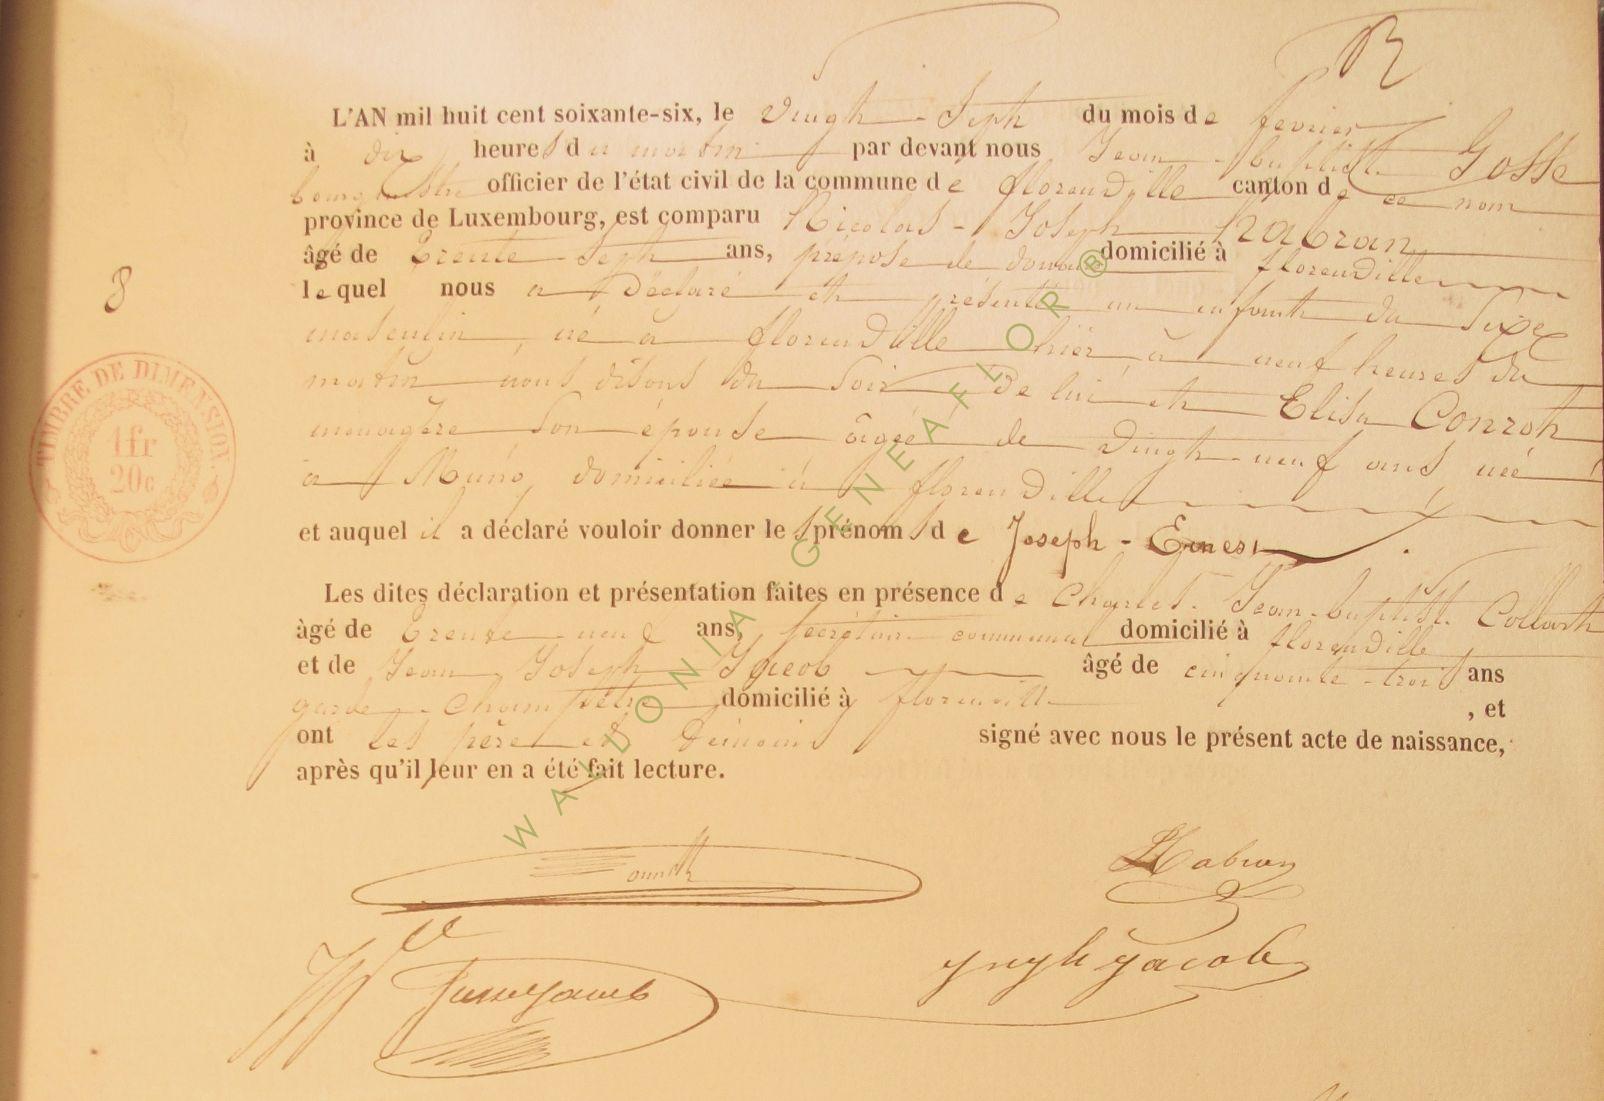 L'AN mil huit cent soixante-six, le vingt-sept du mois de février
à dix heures du matin par devant nous Jean-baptiste Gosse
bourgmestre officier de l'état civil de la commune de florenville canton de ce nom
province de Luxembourg, est comparu Nicolas-Joseph habran
âgé de trente sept ans, préposé de douane domicilié à florenville
lequel nous a déclaré et présenté un enfant du sexe
8
masculin né à florenville hier à neuf heures du
matin nous disons du soir de lui et Elisa Conrot
ménagère son épouse âgée de vingt-neuf ans née
à Muno domiciliée à florenville
et auquel il a déclaré vouloir donner les prénoms de Joseph-Ernest.
TIMBRE DE DIMENSION.
1fr
20c
Les dites déclaration et présentation faites en présence de Charles-Jean-baptiste Collart
âgé de trente neuf ans, secrétaire communal domicilié à florenville
et de Jean Joseph Jacob âgé de cinquante-trois ans
garde-champêtre domicilié à florenville, et
ont les père et témoins signé avec nous le présent acte de naissance,
après qu'il leur en a été fait lecture.
WALLONIA GENEAFLOR ®
Habran
Jacob